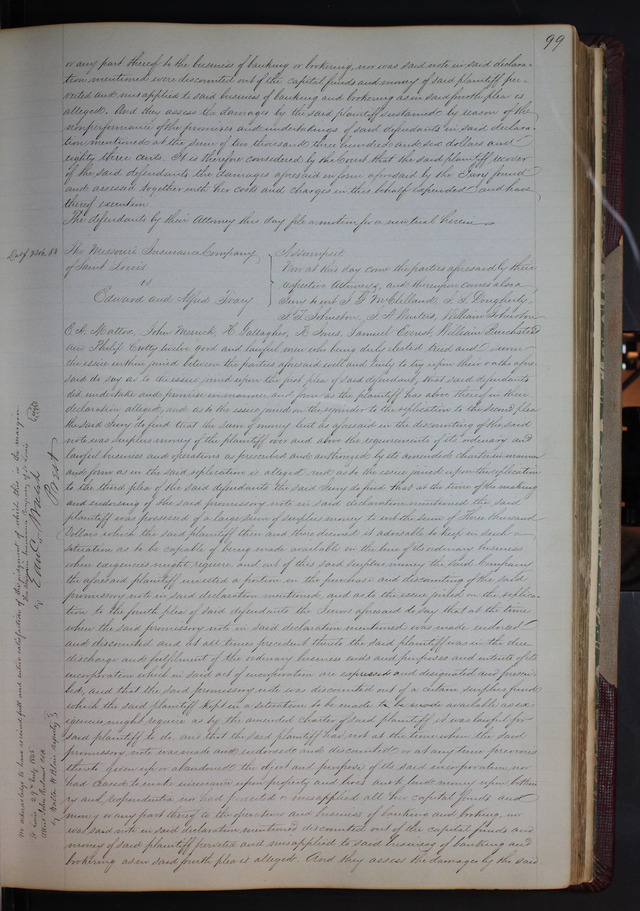 99
or any part thereof to the business of banking or brokering, nor was said note in said declara-
tion mentioned were discounted out of the capital funds and money of said plaintiff per-
verted and misapplied to said business of banking and brokering as in said fourth plea is
alleged. And they assess the damages by the said plaintiff sustained by reason of the
nonperformance of the promises and undertakings of said defendants in said declara-
tion mentioned at the sum of two thousand three hundred and six dollars and
eighty three cents. It is therefore considered by the Court that the said plaintiff recover
of the said defendants the damages aforesaid in form aforesaid by the Jury found
and assessed together with her costs and charges in this behalf expended and have
thereof execution.
The defendants by their Attorney this day file a motion for a new trial herein
The Missouri Insurance Company
of Saint Louis
vs
Edward and Alfred Tracy
Assumpsit
Now at this day come the parties aforesaid by their
respective Attorneys, and thereupon comes also a
Jury to wit J G McClelland, Dougherty,
Johnston, Winters, William Johnston
Mattox, John Mesnick, H Gallagher, R Jones, Samuel Ernst, William
and Philip Crotty, twelve good and lawful men who being duly elected tried and sworn
the issue within joined between the parties aforesaid well and truly to try upon their oaths afore-
said do say as to the issue joined upon the first plea of said defendant, that said defendants
did undertake and promise in manner and form as the plaintiff has above thereof in their
declaration alleged, and as to the issue joined on the rejoinder to the replication to the second plea
the said Jury do find that the sum of money lent as aforesaid in the discounting of the said
note was surplus money of the plaintiff over and above the requirements of its ordinary and
lawful business and operations as prescribed and authorized by its amended charter in manner
and form as in the said replication is alleged and as to the issue joined upon the replication
to the third plea of the said defendants the said Jury do find that at the time of the making
and endorsing of the said promissory note in said declaration mentioned the said
plaintiff was possessed of a large sum of surplus money to wit the sum of Three thousand
dollars which the said plaintiff then and there deemed it advisable to keep in such a
situation as to be capable of being made available in the line of its ordinary business
when exigencies might require and out of this said surplus money the said Company
the aforesaid plaintiff invested a portion in the purchase and discounting of the said
promissory note in said declaration mentioned, and as to the issue joined on the replica-
tion to the fourth plea of said defendants the Jurors aforesaid do say that at the time
when the said promissory note in said declaration mentioned was made endorsed
and discounted and at all times precedent thereto the said plaintiff was in the due
discharge and fulfilment of the ordinary business ends and purposes and intents of its
incorporation which in said act of incorporation are expressed and designated and prescri-
bed, and that the said promissory note was discounted out of a certain surplus fund
which the said plaintiff kept in a situation to be made to be made available as ex-
igencies might require as by the amended charter of said plaintiff it was lawful for
said plaintiff to do, and that the said plaintiff had not at the time when the said
promissory note was made and endorsed and discounted or at any time previous
thereto given up or abandoned the object and purpose of its said incorporation nor
had ceased to make insurance upon property and lives and to lend money upon bottom-
ry and respondentia nor had perverted or misapplied all her capital funds and
money or any part thereof to the operations and business of banking and broking, nor
was said note in said declaration mentioned discounted out of the capital funds and
money of said plaintiff perverted and misapplied to said business of banking and
brokering as in said fourth plea is alleged. And they assess the damages by the said
We acknowledge to have received full and entire satisfaction of the judgment of which this is the margin
St Louis 29th July 1845